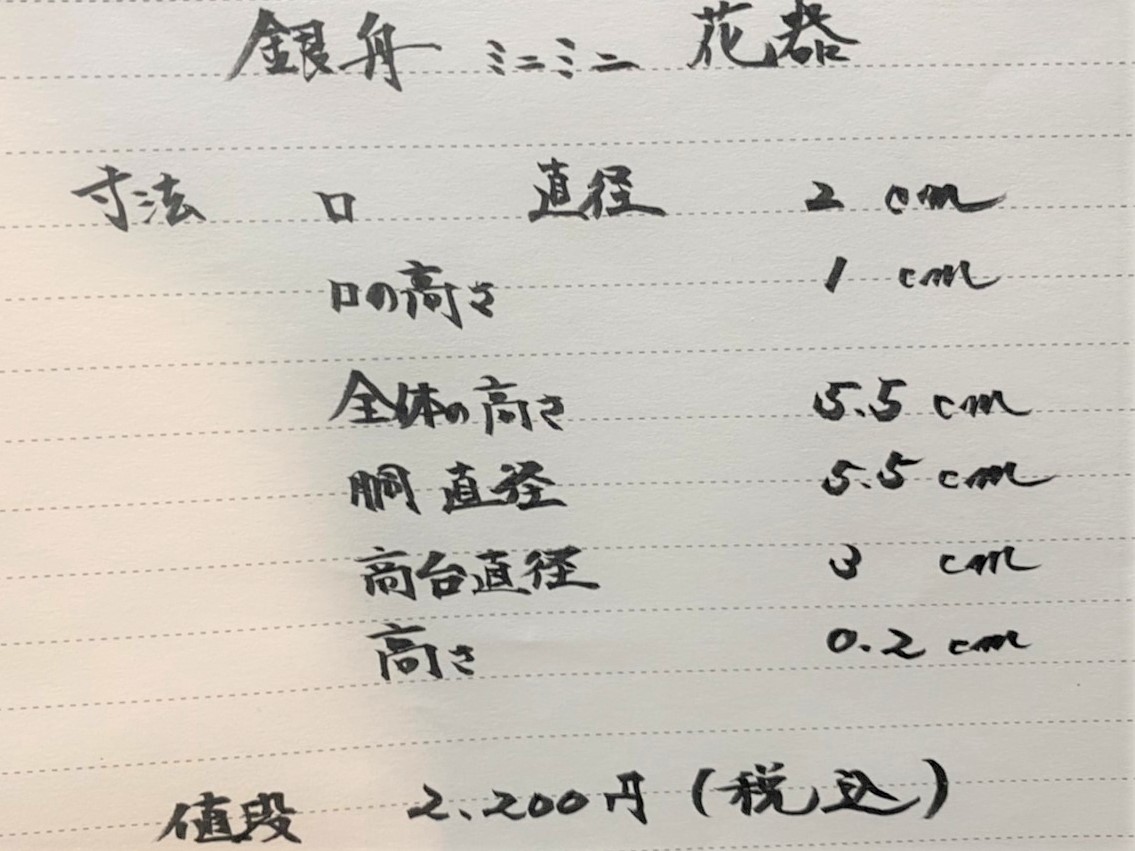 銀舟 ミニミニ 花器
寸法 口 直径 2 cm
口の高さ 1 cm
全体の高さ 5.5 cm
胴 直径 5.5 cm
高台直径 3 cm
高さ 0.2 cm
値段 2,200円 (税込)